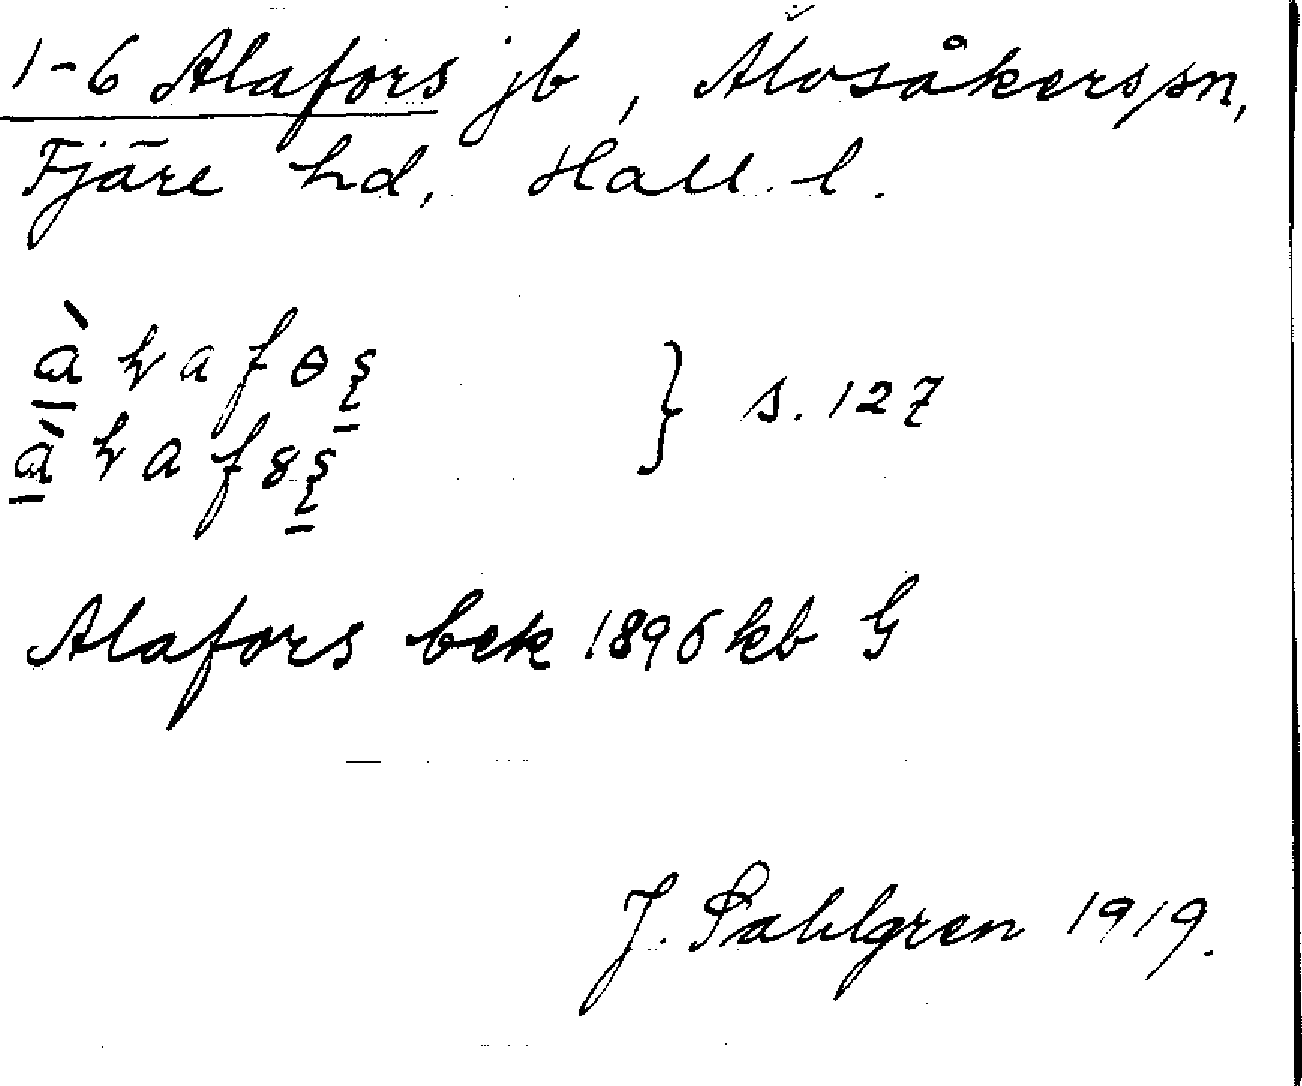 1-6 Alafors jb, Älvsåkers sn,
Fjäre hd, Hall. l.
s. 127
Alafors bek 1896 kb G
J. Sahlgren 1919.